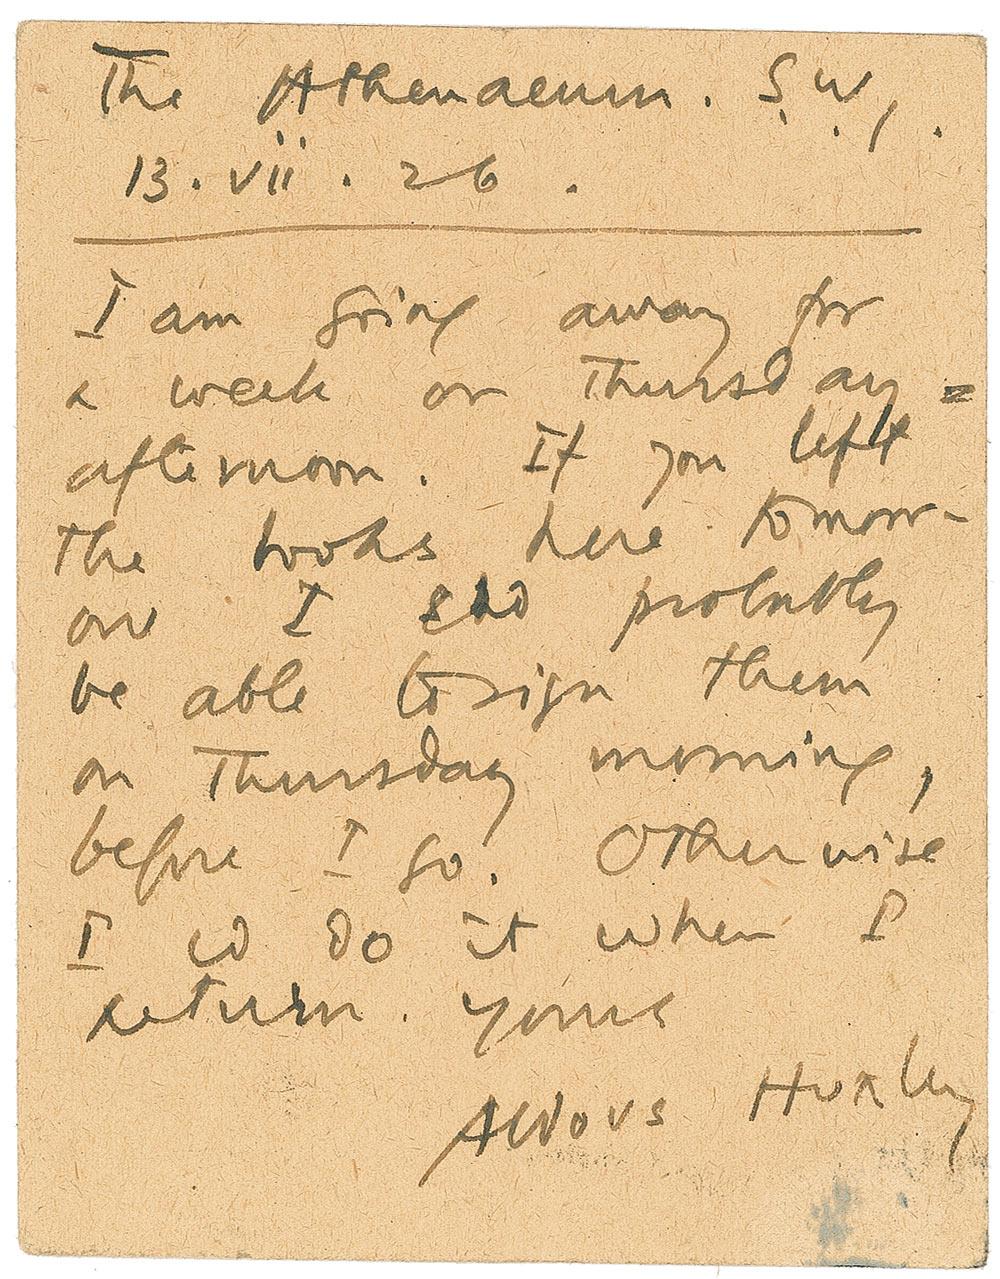 The Athenaeum. S.W.1.
13.vii.26.
I am going away for
a week on Thursday =
afternoon. If you left
the books here tomorr-
ow I shd probably
be able to sign them
on Thursday morning,
before I go. Otherwise
I cd do it when I
return. Yours
Aldous Huxley